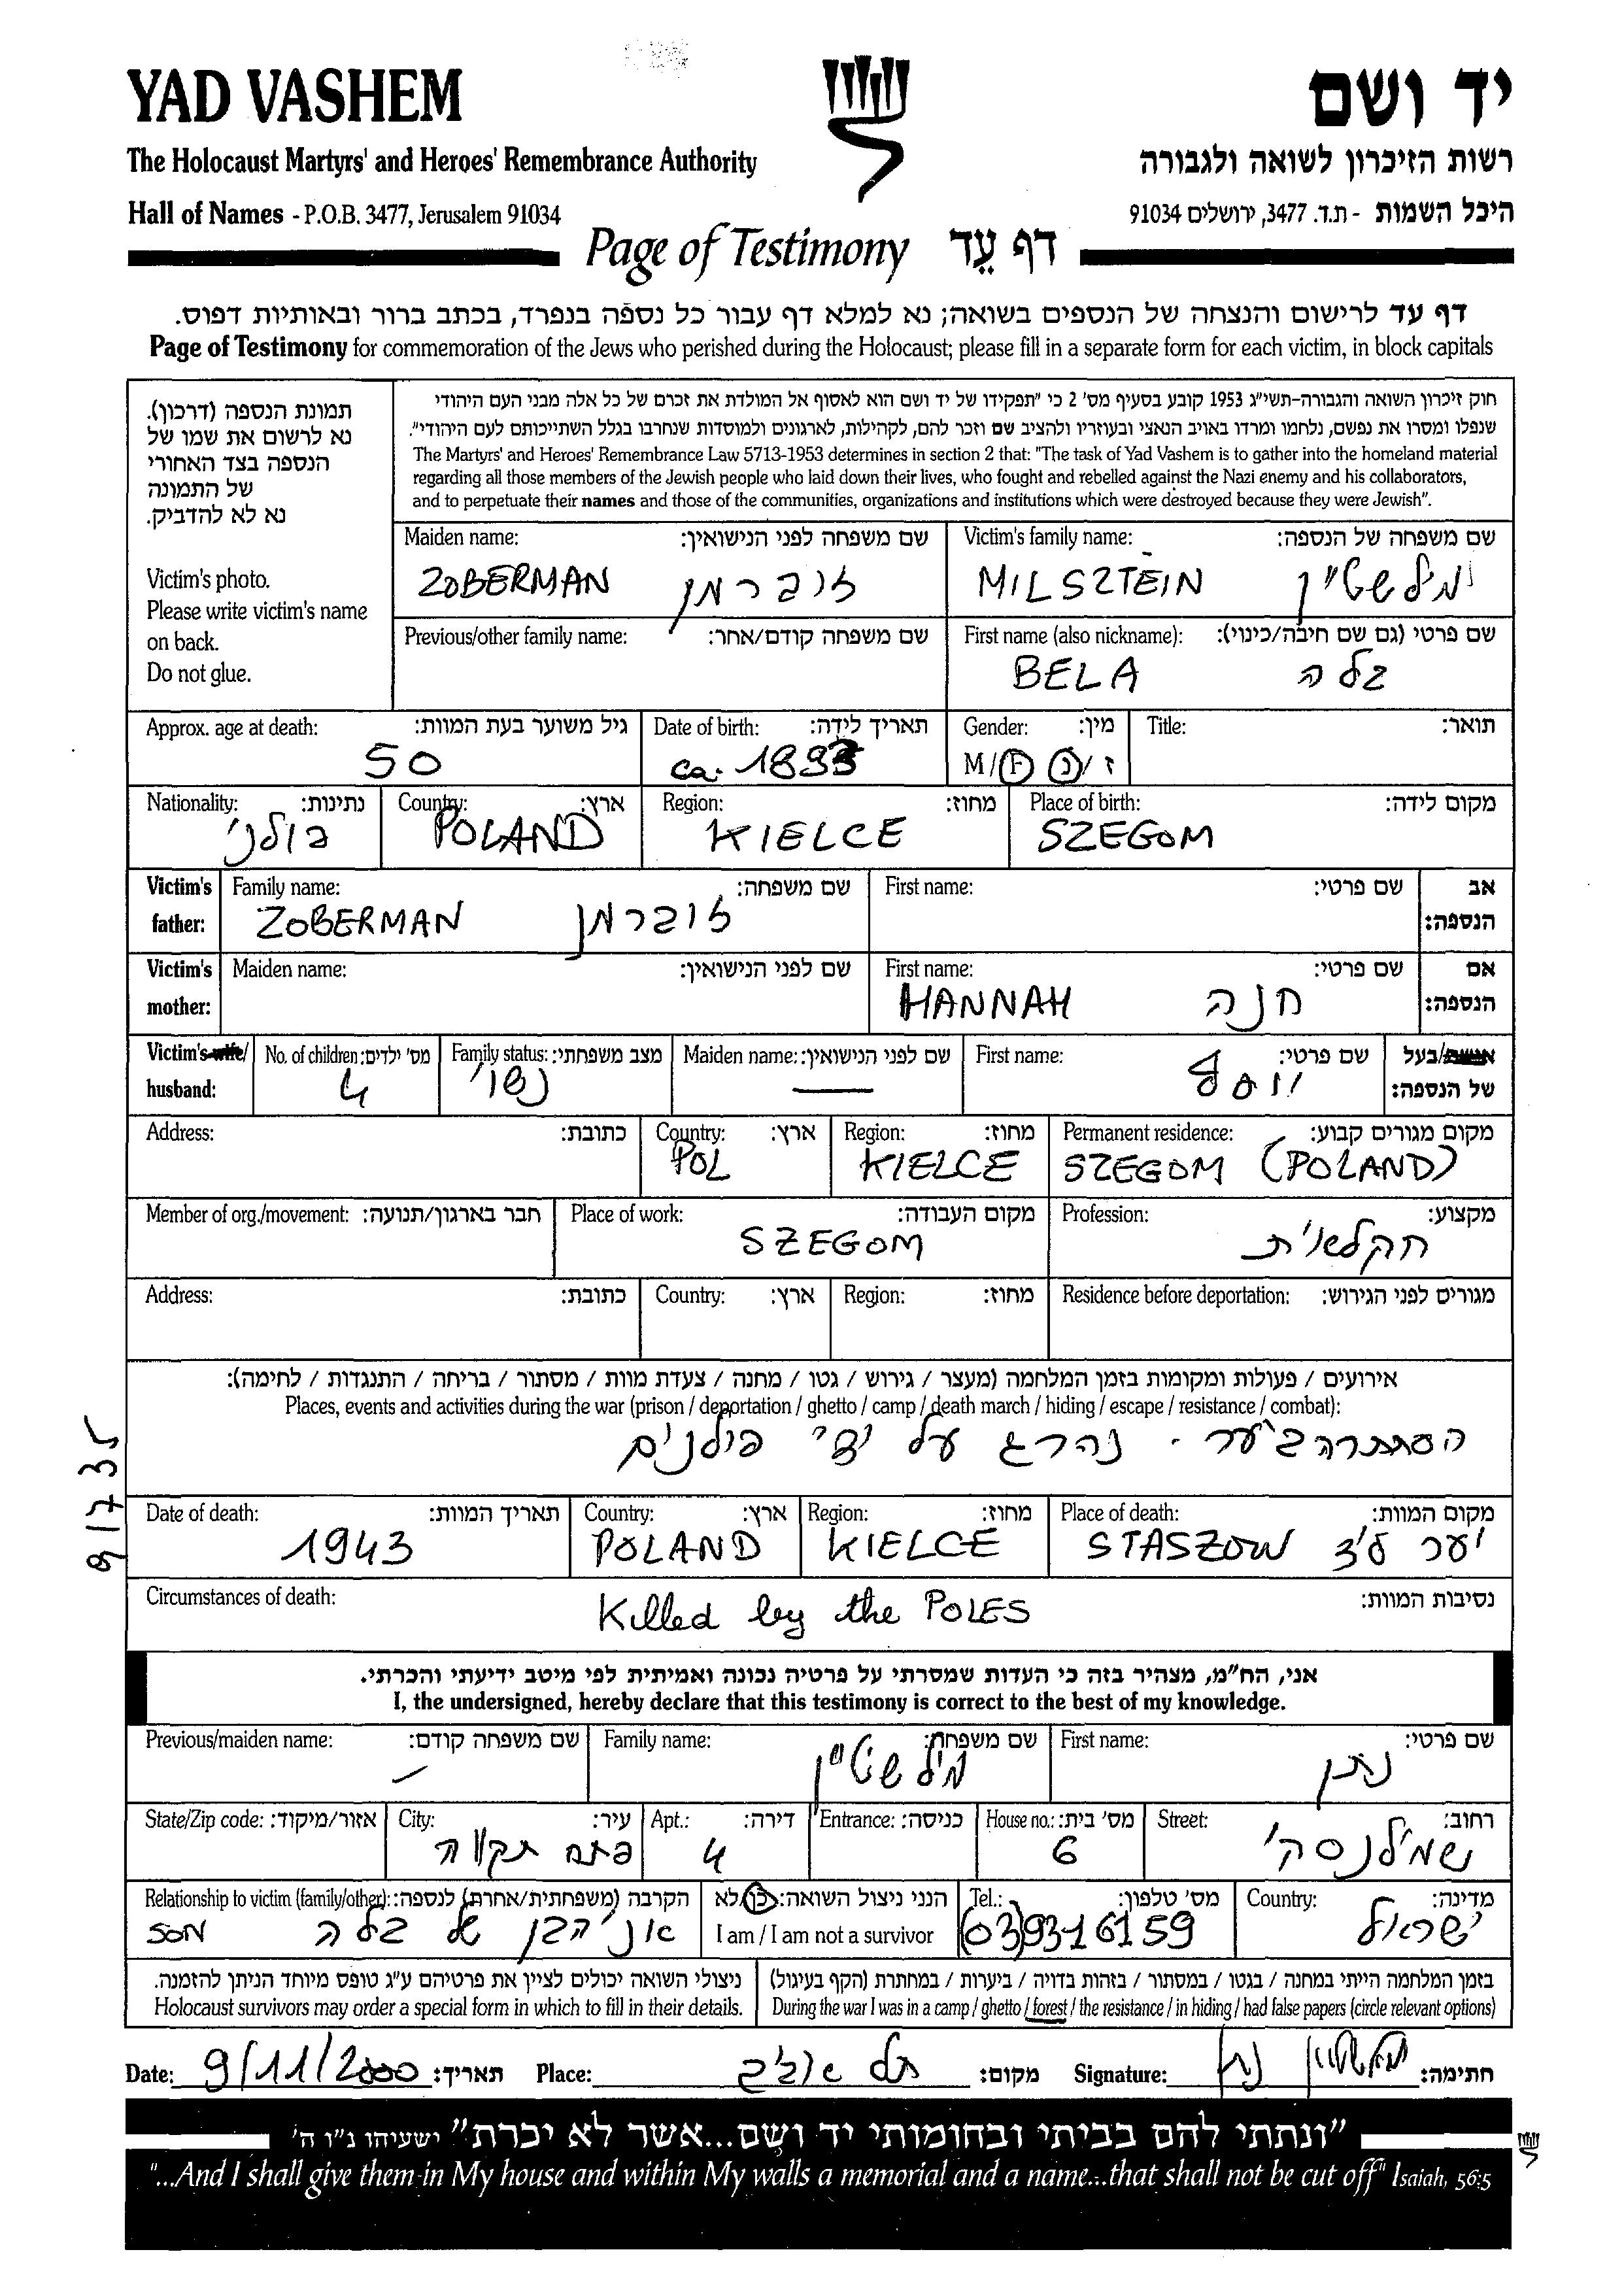 YAD VASHEM
יד ושם
The Holocaust Martyrs' and Heroes' Remembrance Authority
רשות הזיכרון לשואה ולגבורה
Hall of Names - P.O.B. 3477, Jerusalem 91034
היכל השמות - ת.ד. 3477, ירושלים 91034
Page of Testimony דף עֵד
דף עד לרישום והנצחה של הנספים בשואה; נא למלא דף עבור כל נספה בנפרד, בכתב ברור ובאותיות דפוס.
Page of Testimony for commemoration of the Jews who perished during the Holocaust; please fill in a separate form for each victim, in block capitals
תמונת הנספה (דרכון).
נא לרשום את שמו של
הנספה בצד האחורי
של התמונה
נא לא להדביק.
Victim's photo.
Please write victim's name
on back.
Do not glue.
חוק זיכרון השואה והגבורה-תשי"ג 1953 קובע בסעיף מס' 2 כי "תפקידו של יד ושם הוא לאסוף אל המולדת את זכרם של כל אלה מבני העם היהודי
שנפלו ומסרו את נפשם, נלחמו ומרדו באויב הנאצי ובעוזריו ולהציב שם וזכר להם, לקהילות, לארגונים ולמוסדות שנחרבו בגלל השתייכותם לעם היהודי".
The Martyrs' and Heroes' Remembrance Law 5713-1953 determines in section 2 that: "The task of Yad Vashem is to gather into the homeland material
regarding all those members of the Jewish people who laid down their lives, who fought and rebelled against the Nazi enemy and his collaborators,
and to perpetuate their names and those of the communities, organizations and institutions which were destroyed because they were Jewish".
Maiden name: שם משפחה לפני הנישואין:
ZOBERMAN זוברמן
Victim's family name: שם משפחה של הנספה:
MILSZTEIN מילשטיין
Previous/other family name: שם משפחה קודם/אחר:
First name (also nickname): שם פרטי (גם שם חיבה/כינוי):
BELA בלה
Approx. age at death: גיל משוער בעת המוות:
50
Date of birth: תאריך לידה:
ca. 1893
Gender: מין:
M/F נ/ז
Title: תואר:
Nationality: נתינות:
פולני
Country: ארץ:
POLAND
Region: מחוז:
KIELCE
Place of birth: מקום לידה:
SZEGOM
Victim's father:
Family name: שם משפחה:
ZOBERMAN זוברמן
First name: שם פרטי:
אב הנספה:
Victim's mother:
Maiden name: שם לפני הנישואין:
First name: שם פרטי:
HANNAH חנה
אם הנספה:
Victim's wife/ husband:
No. of children: מס' ילדים:
4
Family status: מצב משפחתי:
נשוי
Maiden name: שם לפני הנישואין:
—
First name: שם פרטי:
יוסף
אשת/בעל של הנספה:
Address: כתובת:
Country: ארץ:
POL
Region: מחוז:
KIELCE
Permanent residence: מקום מגורים קבוע:
SZEGOM (POLAND)
Member of org./movement: חבר בארגון/תנועה:
Place of work: מקום העבודה:
SZEGOM
Profession: מקצוע:
חקלאית
Address: כתובת:
Country: ארץ:
Region: מחוז:
Residence before deportation: מגורים לפני הגירוש:
אירועים / פעולות ומקומות בזמן המלחמה (מעצר / גירוש / גטו / מחנה / צעדת מוות / מסתור / בריחה / התנגדות / לחימה):
Places, events and activities during the war (prison / deportation / ghetto / camp / death march / hiding / escape / resistance / combat):
הסתתרה ביער. נהרג על ידי פולנים
91735
Date of death: תאריך המוות:
1943
Country: ארץ:
POLAND
Region: מחוז:
KIELCE
Place of death: מקום המוות:
STASZOW יער ליד
Circumstances of death: נסיבות המוות:
Killed by the POLES
אני, הח"מ, מצהיר בזה כי העדות שמסרתי על פרטיה נכונה ואמיתית לפי מיטב ידיעתי והכרתי.
I, the undersigned, hereby declare that this testimony is correct to the best of my knowledge.
Previous/maiden name: שם משפחה קודם:
Family name: שם משפחה:
מילשטיין
First name: שם פרטי:
נתן
State/Zip code: אזור/מיקוד:
City: עיר:
פתח תקוה
Apt.: דירה:
4
Entrance: כניסה:
House no.: מס' בית:
6
Street: רחוב:
שמילנסקי
Relationship to victim (family/other): הקרבה (משפחתית/אחרת) לנספה:
SON אני הבן של בלה
הנני ניצול השואה: כן/לא
I am / I am not a survivor
Tel.: מס' טלפון:
(03)9316159
Country: מדינה:
ישראל
ניצולי השואה יכולים לציין את פרטיהם ע"ג טופס מיוחד הניתן להזמנה.
Holocaust survivors may order a special form in which to fill in their details.
בזמן המלחמה הייתי במחנה / בגטו / במסתור / בזהות בדויה / ביערות / במחתרת (הקף בעיגול)
During the war I was in a camp / ghetto / forest / the resistance / in hiding / had false papers (circle relevant options)
Date: 9/11/2000 תאריך:
Place: תל אביב מקום:
Signature: מילשטיין נתן חתימה:
"ונתתי להם בביתי ובחומותי יד ושם...אשר לא יכרת" ישעיהו נ"ו ה'
"...And I shall give them in My house and within My walls a memorial and a name...that shall not be cut off" Isaiah, 56:5